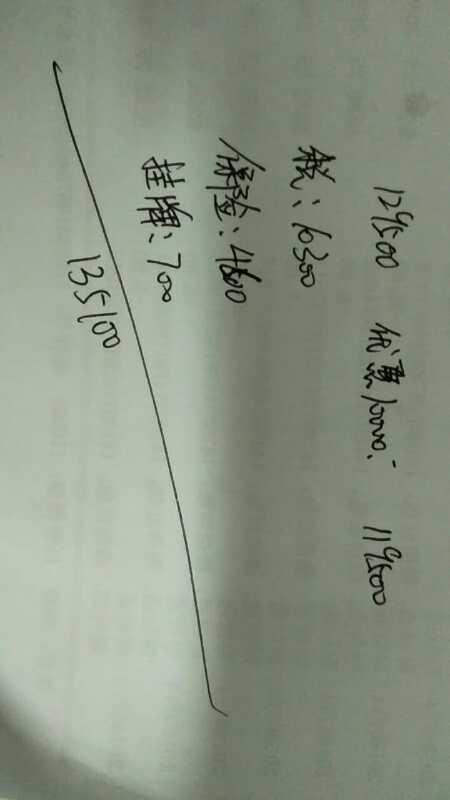 129500 优惠10000.- 119500
税：10300
保险：4600
挂牌：700
135100